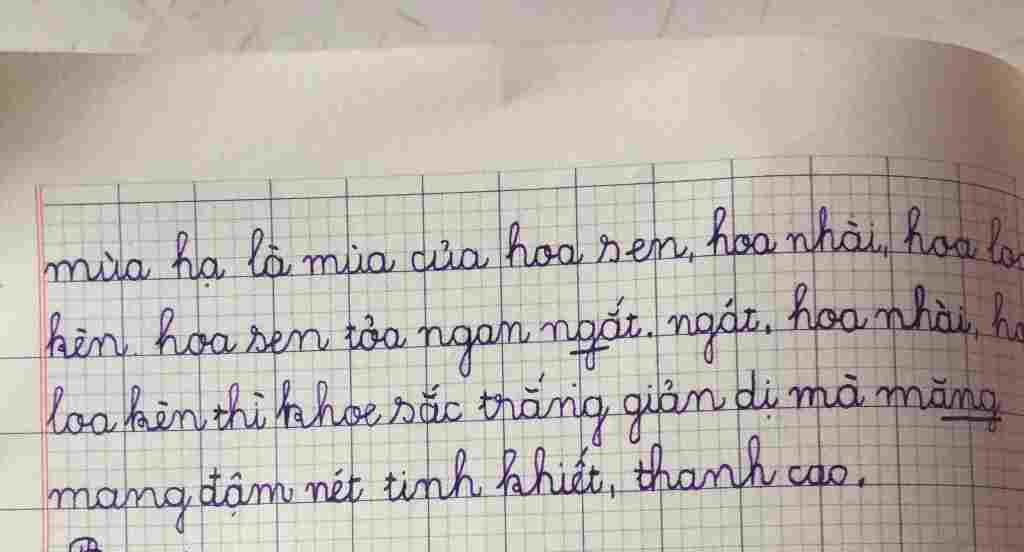 mùa hạ là mùa của hoa sen, hoa nhài, hoa loa
kèn. hoa sen tỏa ngan ngát. ngát. hoa nhài,
loa kèn thì khoe sắc trắng giản dị mà măng
mang đậm nét tinh khiết, thanh cao.